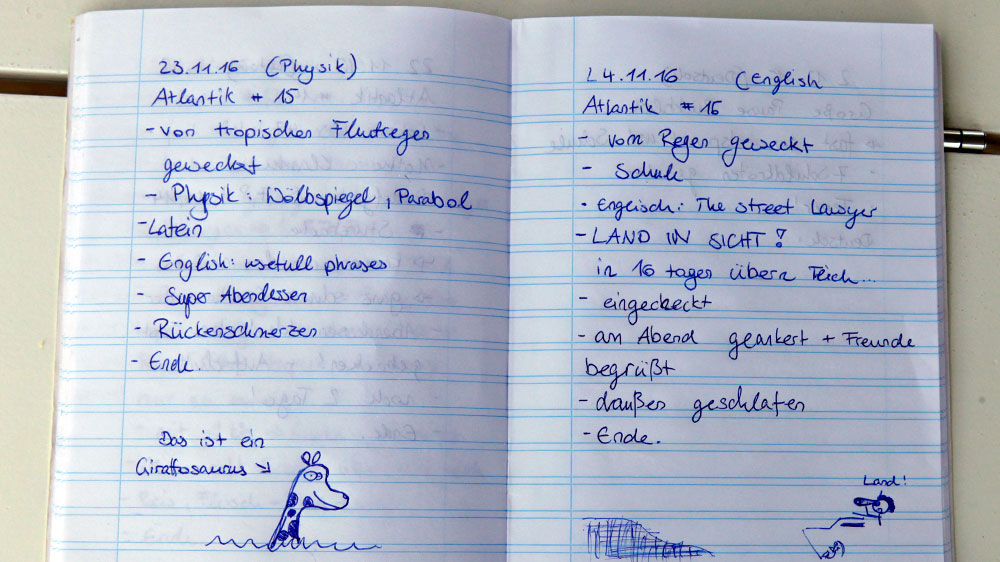 23.11.16 (Physik)
Atlantik # 15
- von tropischen Flutregen
geweckt
- Physik: Wölbspiegel, Parabol
- Latein
- English: usefull phrases
- Super Abendessen
- Rückenschmerzen
- Ende.
Das ist ein
Giraffosaurus
24.11.16 (English
Atlantik # 16
- vom Regen geweckt
- Schule
- Englisch: The street Lawyer
- LAND IN SICHT!
in 16 tagen übern Teich...
- eingecheckt
- am Abend geankert + Freunde
begrüßt
- draußen geschlafen
- Ende.
Land!